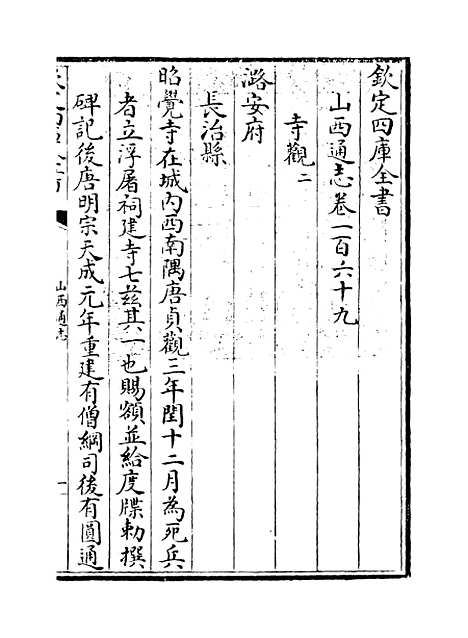 欽定四庫全書
山西通志卷一百六十九
寺觀二
潞安府
長治縣
昭覺寺在城內西南隅唐貞觀三年閏十二月為死兵
者立浮屠祠建寺七兹其一也賜額並給度牒勅撰
碑記後唐明宗天成元年重建有僧綱司後有圓通
山西通志
一